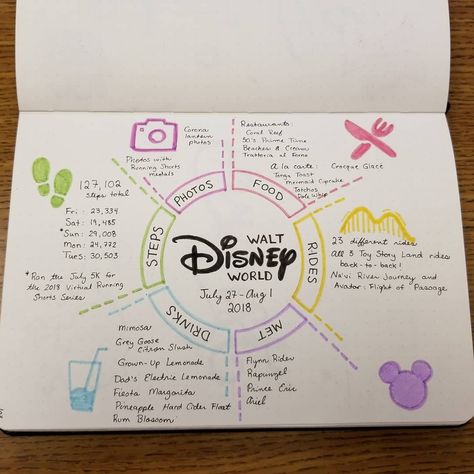 Corona
lantern
photos
Photos with
Running Shorts
medals
PHOTOS
Restaurants:
Coral Reef
50's Prime Time
Beaches & Cream
Trattoria al Forno
A la carte: Croque Glacé
Tonga Toast
Mermaid Cupcake
Totchos
Dole Whip
FOOD
127,102
steps total
Fri: 23,334
Sat: 19,485
*Sun: 29,008
Mon: 24,772
Tues: 30,503
*Ran the July 5K for
the 2018 Virtual Running
Shorts Series
STEPS
WALT
Disney
WORLD
July 27-Aug 1
2018
RIDES
23 different rides
All 3 Toy Story Land rides
back-to-back!
Na'vi River Journey and
Avatar: Flight of Passage
DRINKS
Mimosa
Grey Goose
Citron Slush
Grown-Up Lemonade
Dad's Electric Lemonade
Fiesta Margarita
Pineapple Hard Cider Float
Rum Blossom
MET
Flynn Rider
Rapunzel
Prince Eric
Ariel